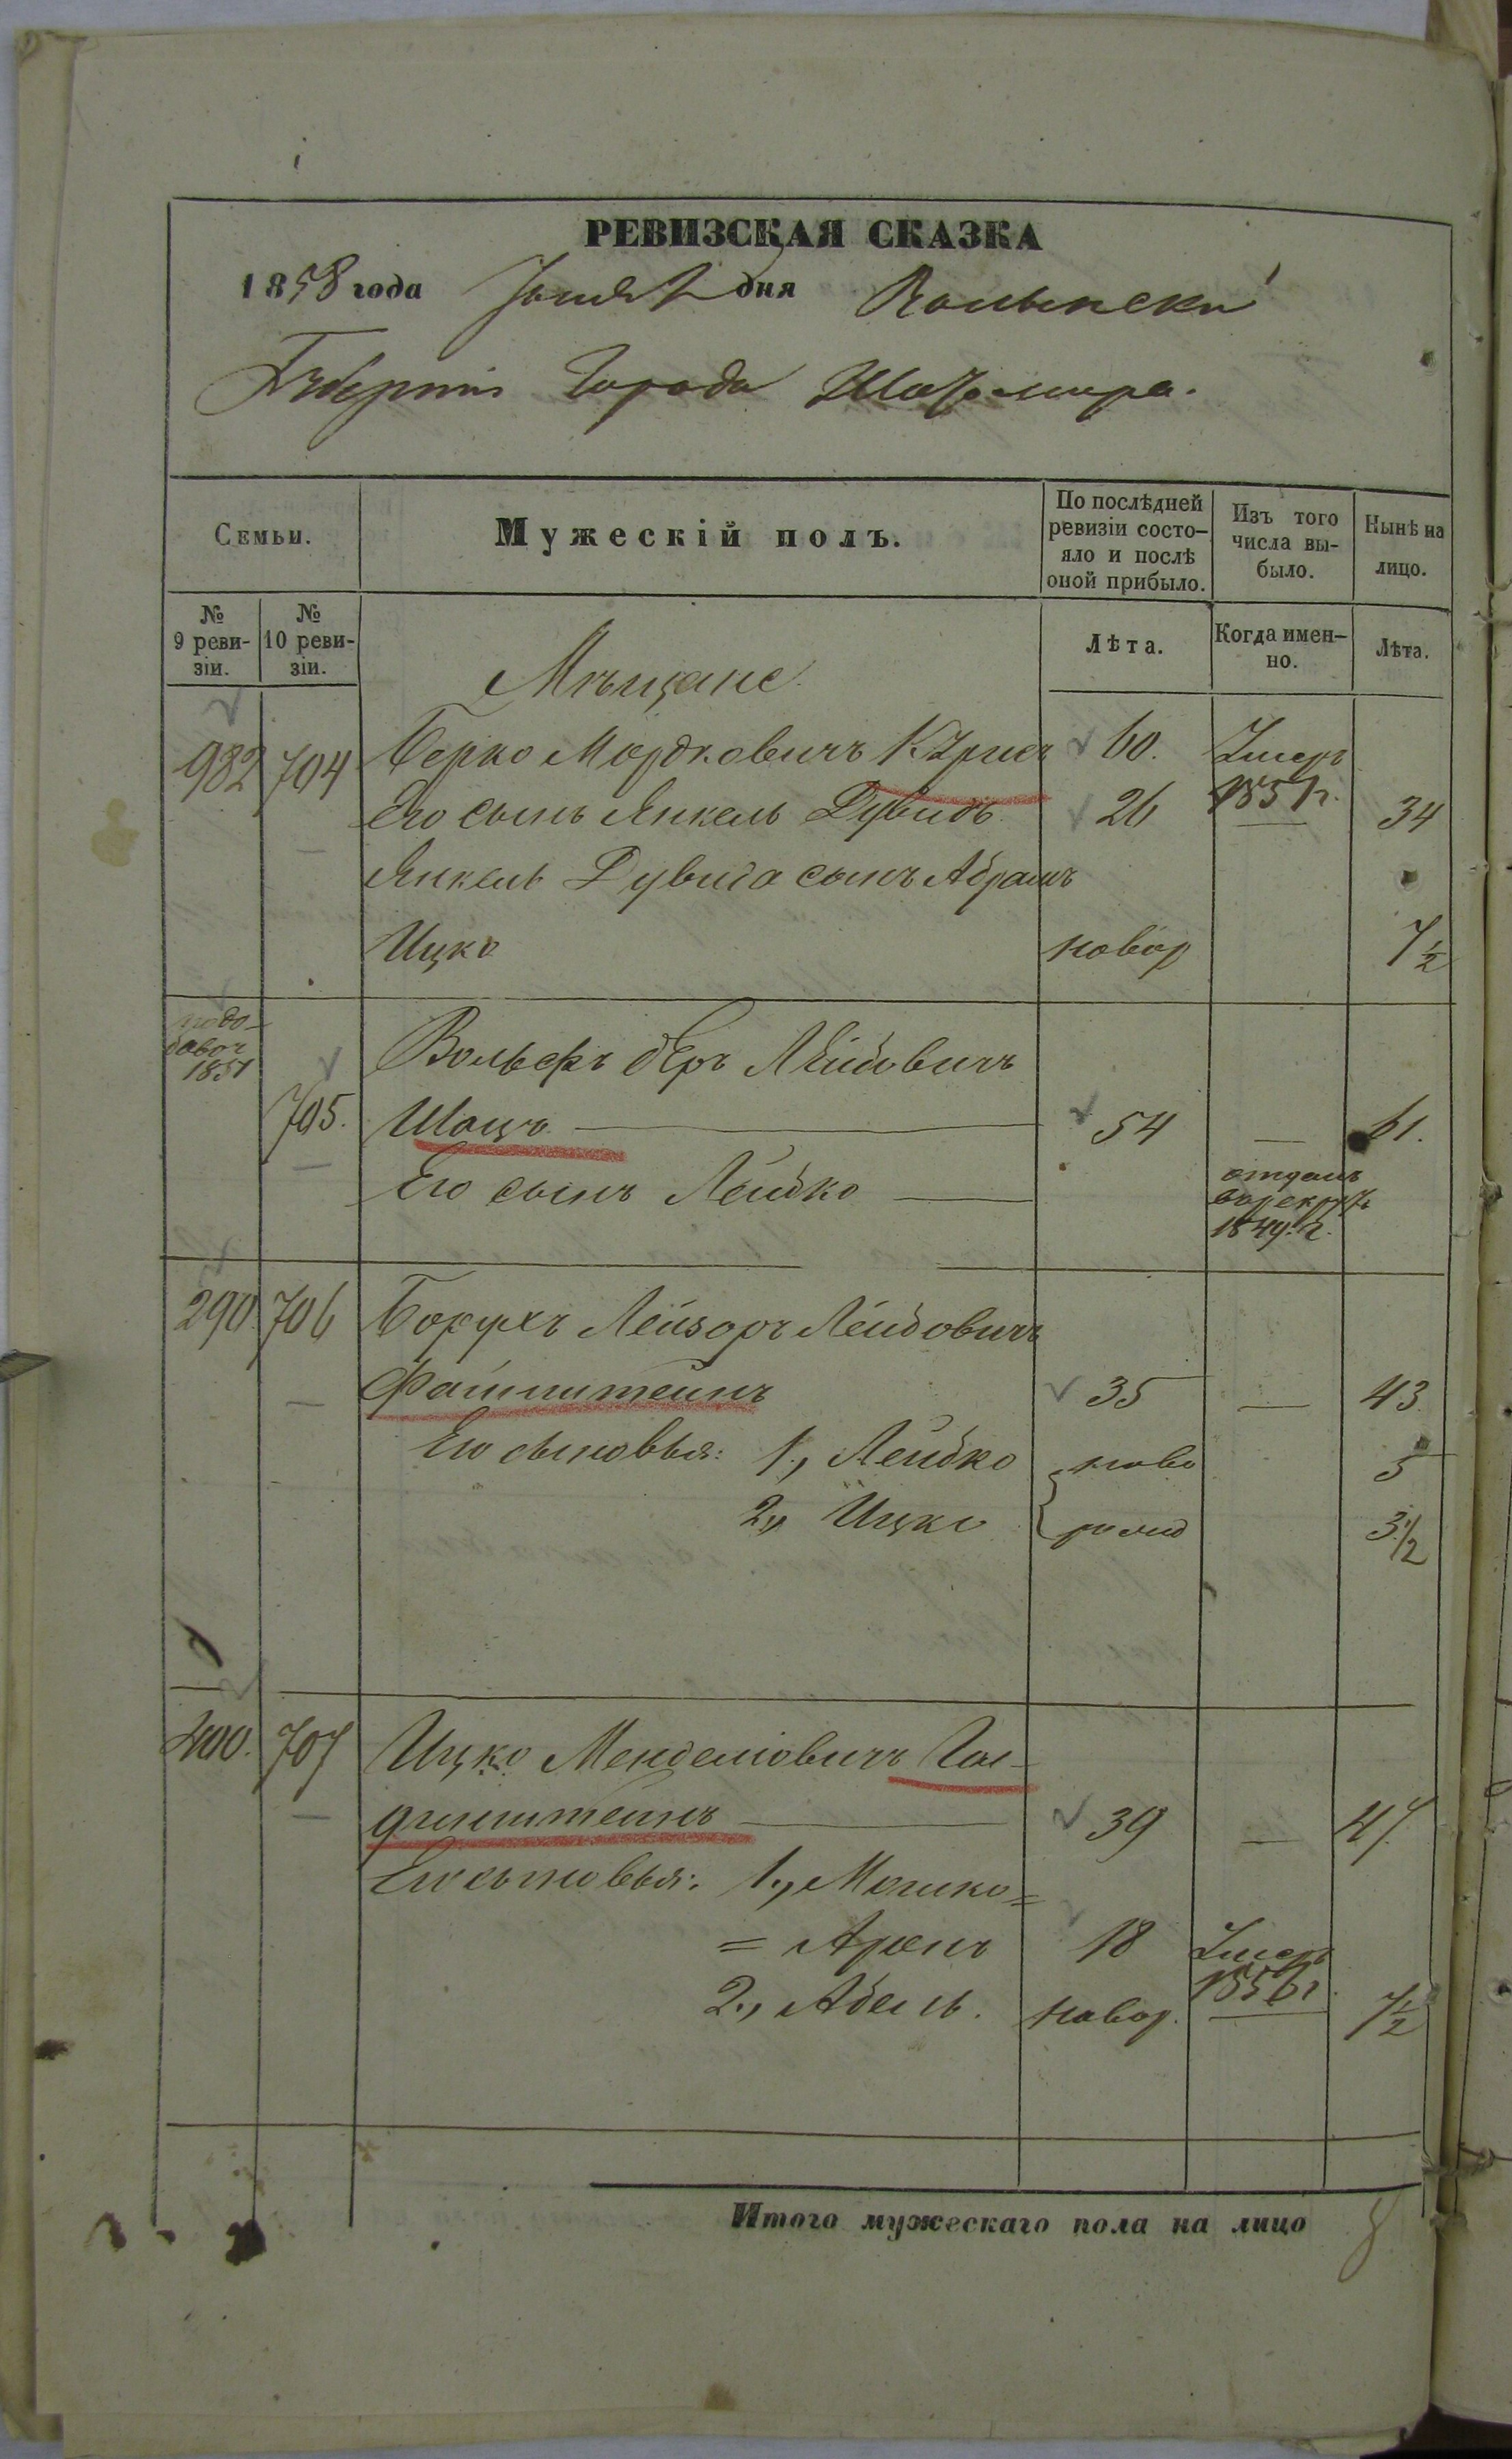 РЕВИЗСКАЯ СКАЗКА
1858 года Іюня дня Волынской
Губерніи Города Житомира.
Семьи.
Мужескій полъ.
По послѣдней ревизіи состо-
яло и послѣ оной прибыло.
Изъ того числа вы-
было.
Нынѣ на лицо.
№ 9 реви-
зіи.
№ 10 реви-
зіи.
Лѣта.
Когда имен-
но.
Лѣта.
Мѣщане
982 704 Берко Мордковичъ 60. Умеръ
Его сынъ Янкель Дувидъ 26 1851 г. 34
Янкель Дувида сынъ Абрамъ
Ицко новор 7½
1851 Вольфъ Беръ Лейбовичъ
705. Шацъ 54 — 61.
Его сынъ Лейбко отданъ
в рекруты
1849 г.
290 706 Борухъ Лейзоръ Лейбовичъ
Файнштейнъ 35 — 43
Его сыновья: 1., Лейбко ново 5
2., Ицко рожд 3½
400. 707 Ицко Менделіовичъ Гол-
дгинштейнъ 39 — 47.
Его сыновья: 1., Мошко=
= Аронъ 18 Умеръ
2., Абель. новор. 1856 г. 7½
Итого мужескаго пола на лицо 8